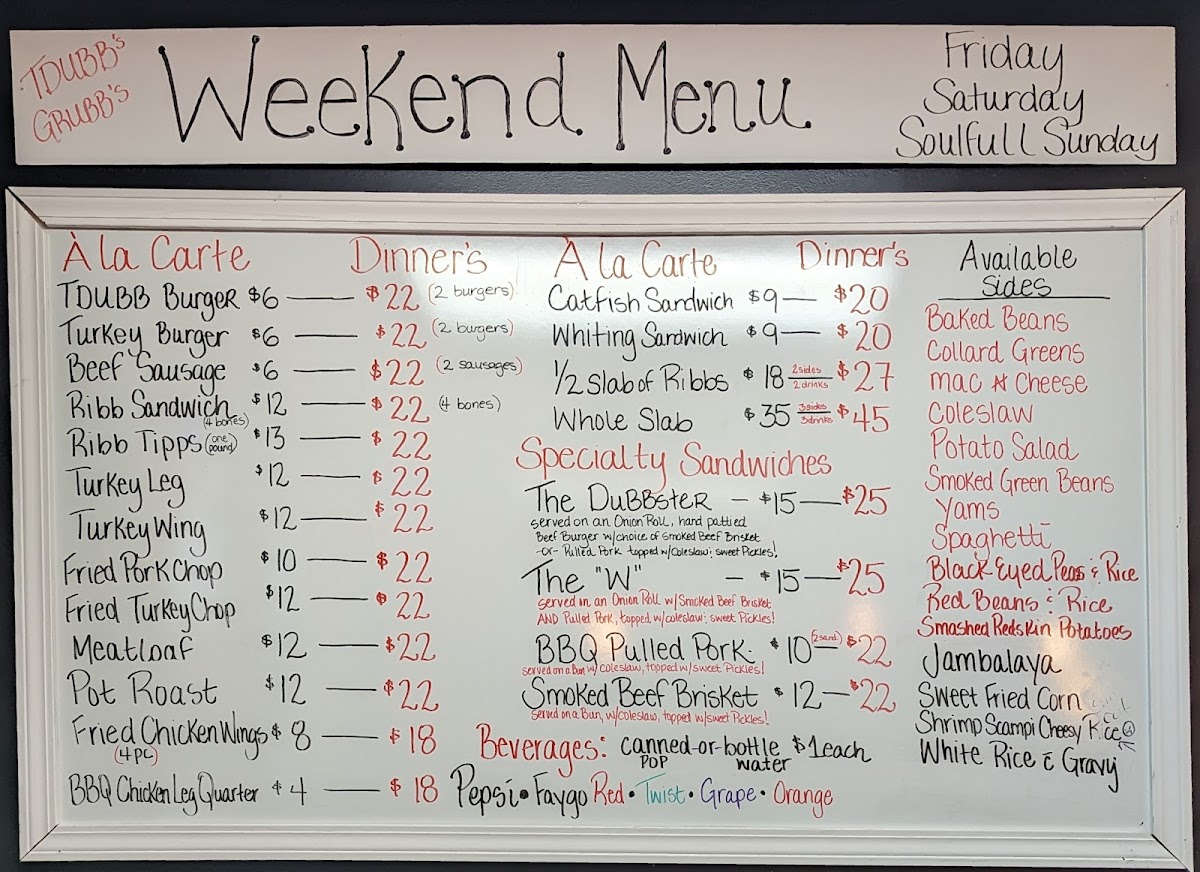 TDUBB's
GRUBB's
Weekend Menu
Friday
Saturday
Soulfull Sunday
À la Carte Dinner's
TDUBB Burger $6 — $22 (2 burgers)
Turkey Burger $6 — $22 (2 burgers)
Beef Sausage $6 — $22 (2 sausages)
Ribb Sandwich (4 bones) $12 — $22 (4 bones)
Ribb Tipps (one pound) $13 — $22
Turkey Leg $12 — $22
Turkey Wing $12 — $22
Fried Pork Chop $10 — $22
Fried Turkey Chop $12 — $22
Meatloaf $12 — $22
Pot Roast $12 — $22
Fried Chicken Wings $8 — $18
(4pc)
BBQ Chicken Leg Quarter $4 — $18
À la Carte Dinner's
Catfish Sandwich $9 — $20
Whiting Sandwich $9 — $20
1/2 slab of Ribbs $18 2 sides 2 drinks $27
Whole Slab $35 3 sides 3 drinks $45
Specialty Sandwiches
The DuBBster – $15 — $25
served on an Onion Roll, hand pattied
Beef Burger w/choice of Smoked Beef Brisket
-or- Pulled Pork topped w/coleslaw; sweet Pickles!
The "W" – $15 — $25
served in an Onion Roll w/Smoked Beef Brisket
AND Pulled Pork, topped w/coleslaw; sweet Pickles!
BBQ Pulled Pork $10 (2 sand.) — $22
served on a Bun w/ coleslaw, topped w/ sweet Pickles!
Smoked Beef Brisket $12 — $22
Served on a Bun, w/coleslaw, topped w/sweet Pickles!
Beverages: canned-or-bottle $1 each
POP water
Pepsi • Faygo Red • Twist • Grape • Orange
Available
Sides
Baked Beans
Collard Greens
Mac & Cheese
Coleslaw
Potato Salad
Smoked Green Beans
Yams
Spaghetti
Black Eyed Peas & Rice
Red Beans & Rice
Smashed Redskin Potatoes
Jambalaya
Sweet Fried Corn
Shrimp Scampi Cheesy Rice
White Rice c̄ Gravy